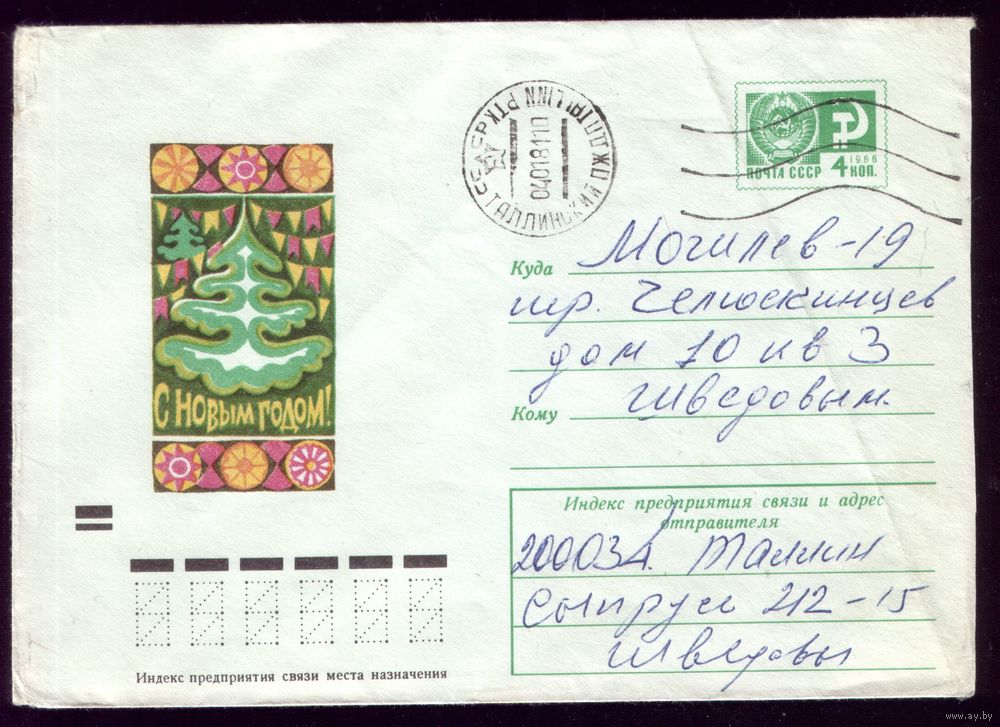 СССР PTK TALLINN
ТАЛЛИНСКИЙ ПЖДП
04018110
1966
ПОЧТА СССР 4 КОП.
С НОВЫМ ГОДОМ!
Куда Могилев-19
пр. Челюскинцев
дом 10 кв 3
Кому Шведовым
Индекс предприятия связи и адрес
отправителя
200034. Таллин
Сыпрузе 212-15
Шведовы
Индекс предприятия связи места назначения
www.ay.by